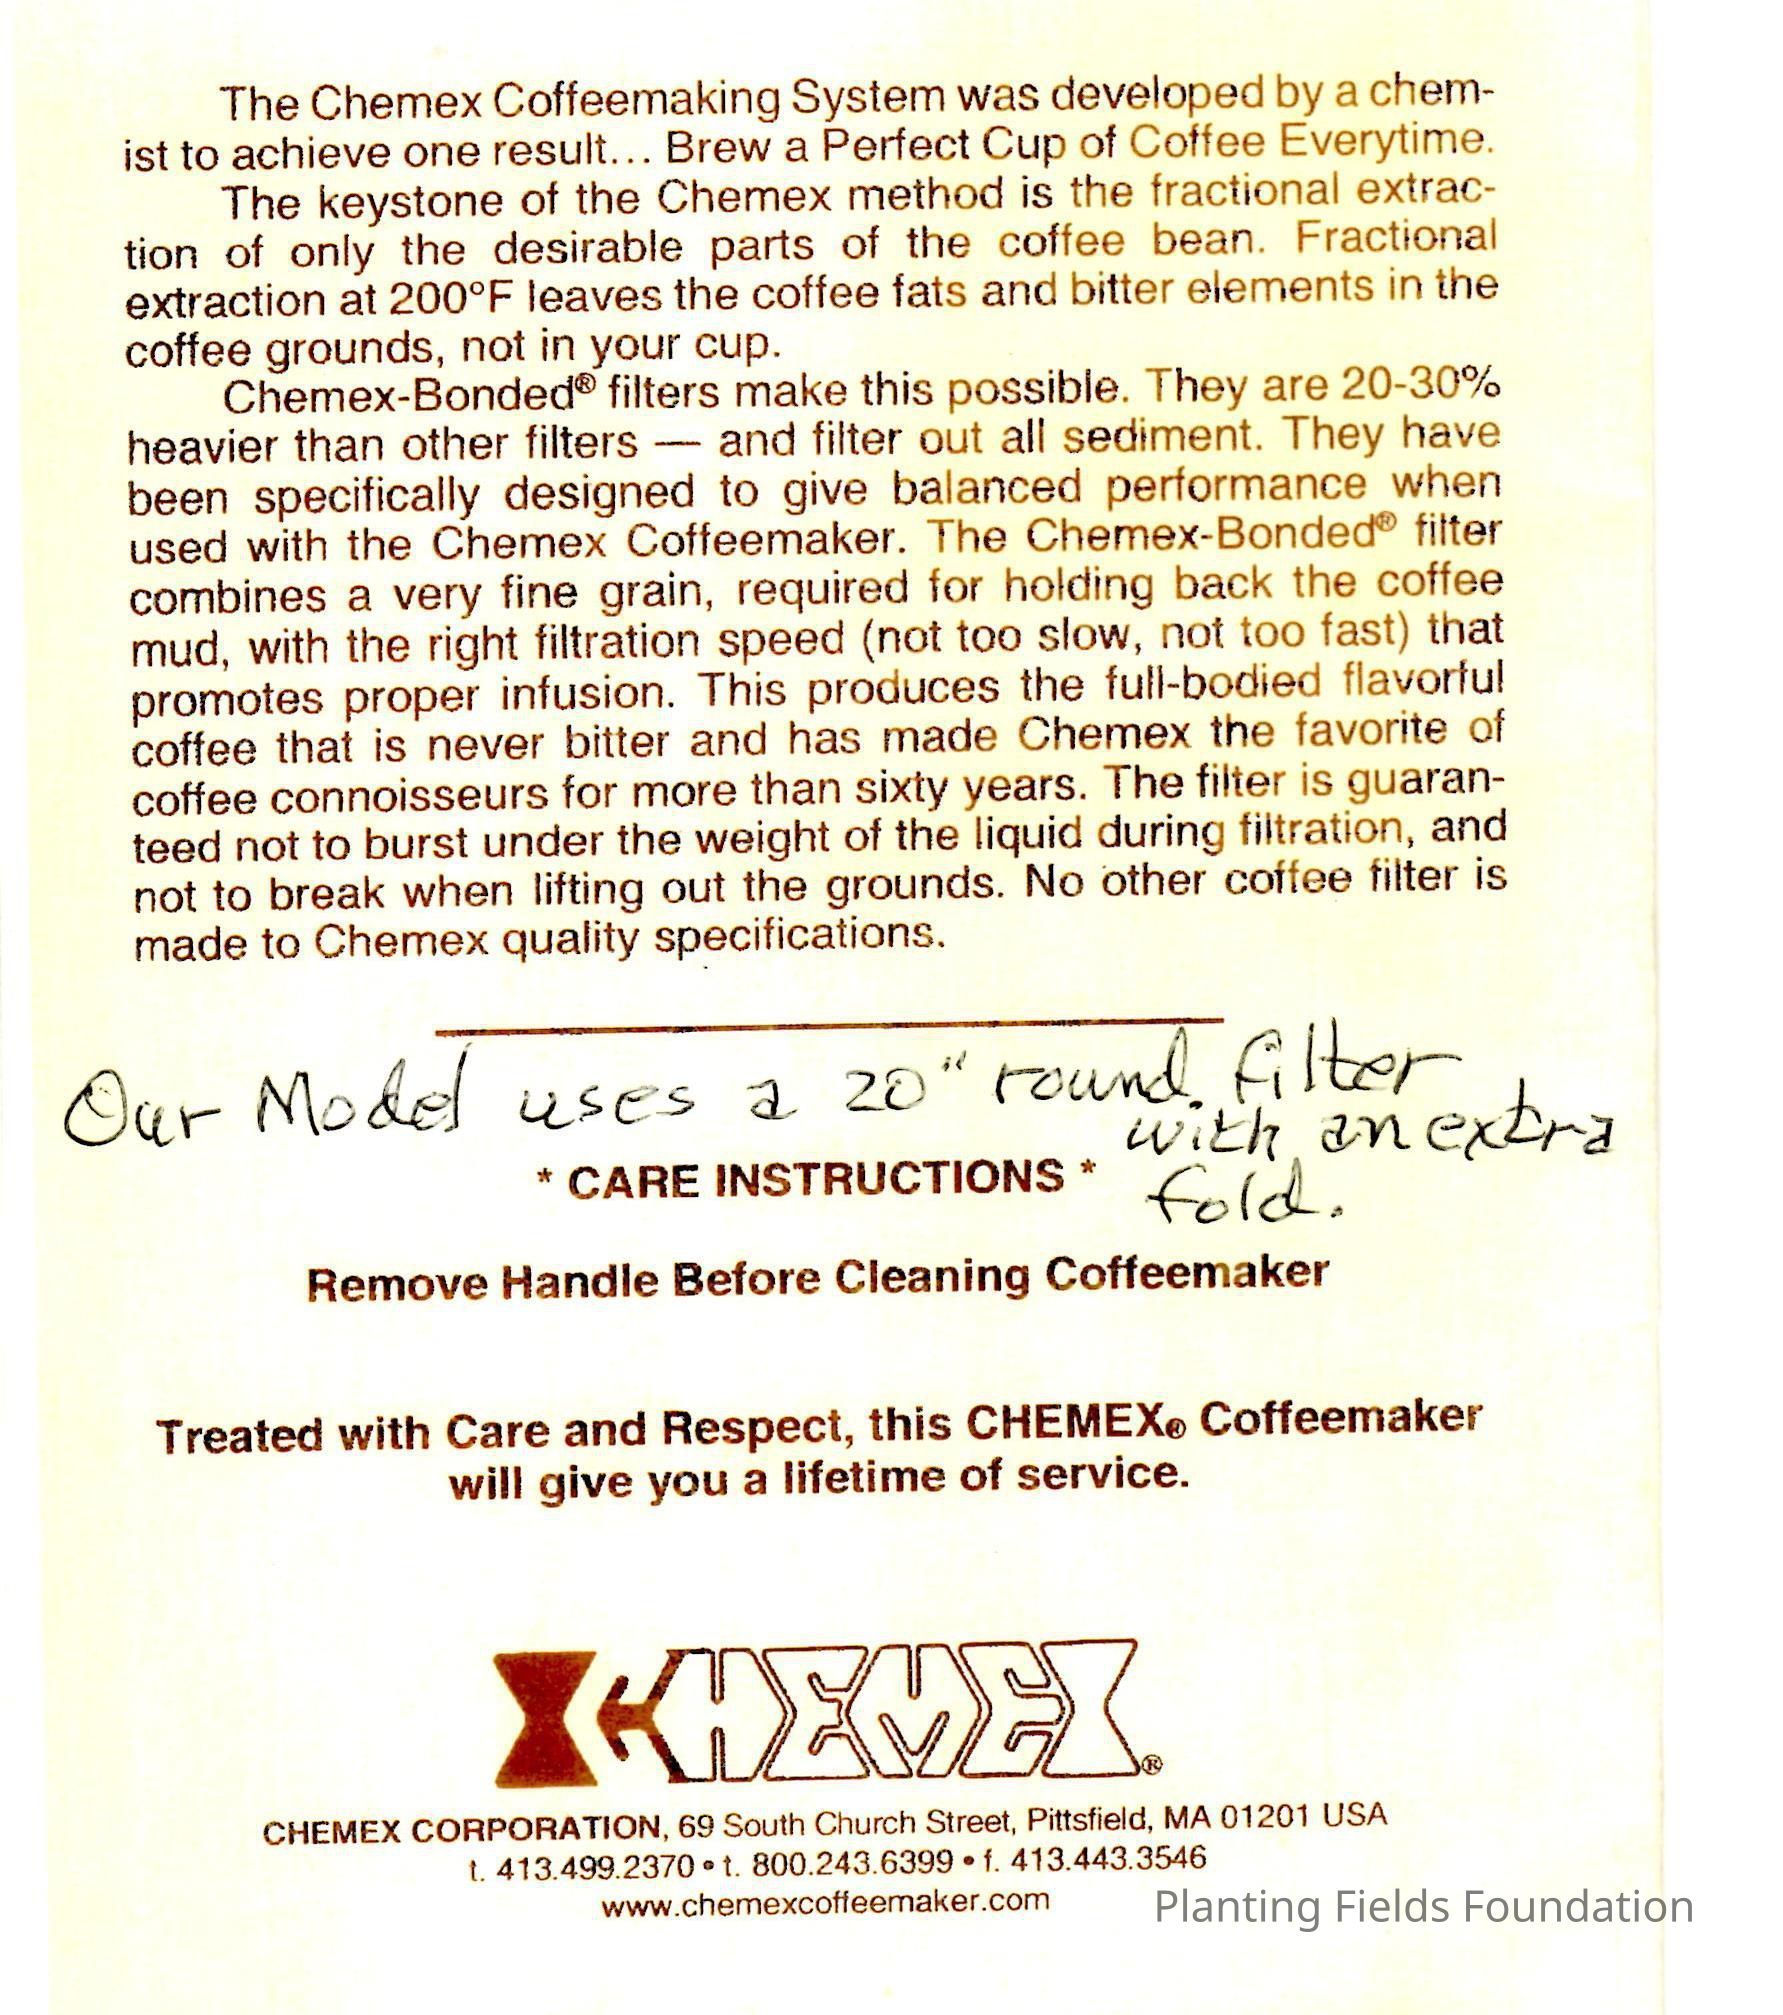 The Chemex Coffeemaking System was developed by a chem-
ist to achieve one result... Brew a Perfect Cup of Coffee Everytime.
The keystone of the Chemex method is the fractional extrac-
tion of only the desirable parts of the coffee bean. Fractional
extraction at 200°F leaves the coffee fats and bitter elements in the
coffee grounds, not in your cup.
Chemex-Bonded® filters make this possible. They are 20-30%
heavier than other filters — and filter out all sediment. They have
been specifically designed to give balanced performance when
used with the Chemex Coffeemaker. The Chemex-Bonded® filter
combines a very fine grain, required for holding back the coffee
mud, with the right filtration speed (not too slow, not too fast) that
promotes proper infusion. This produces the full-bodied flavorful
coffee that is never bitter and has made Chemex the favorite of
coffee connoisseurs for more than sixty years. The filter is guaran-
teed not to burst under the weight of the liquid during filtration, and
not to break when lifting out the grounds. No other coffee filter is
made to Chemex quality specifications.
Our Model uses a 20" round filter
with an extra
fold.
* CARE INSTRUCTIONS *
Remove Handle Before Cleaning Coffeemaker
Treated with Care and Respect, this CHEMEX® Coffeemaker
will give you a lifetime of service.
CHEMEX®
CHEMEX CORPORATION, 69 South Church Street, Pittsfield, MA 01201 USA
t. 413.499.2370 • t. 800.243.6399 • f. 413.443.3546
www.chemexcoffeemaker.com
Planting Fields Foundation